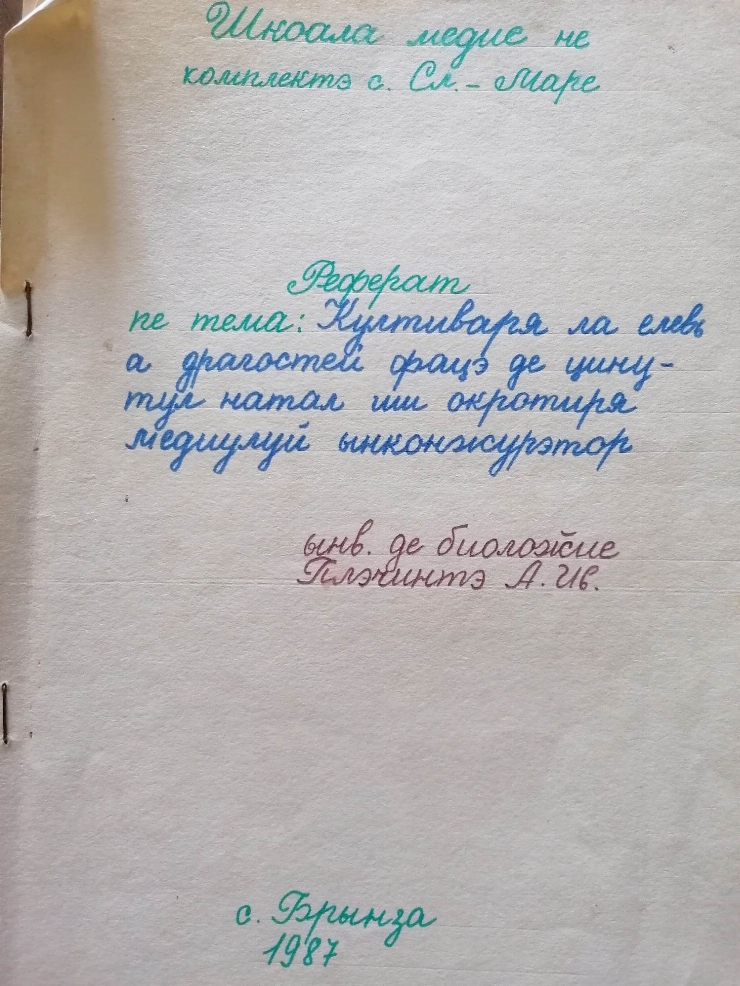 Шкоала медие не
комплектэ с. Сл.-Маре
Реферат
пе тема: Култиваря ла елевь
а драгостей фацэ де цину-
тул натал ши окротиря
медиулуй ынконжурэтор
ынв. де биоложие
Плэчинтэ А. Ив.
с. Брынза
1987